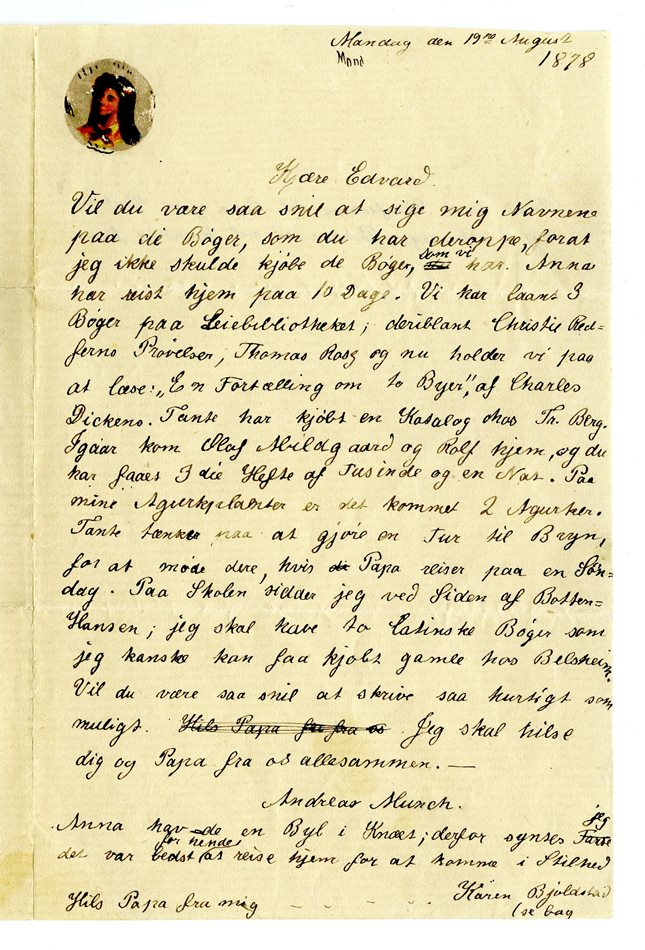 Mandag den 19de August
Mand
1878
Kjære Edvard.
Vil du være saa snil at sige mig Navnene
paa de Bøger, som du har deroppe, forat
jeg ikke skulde kjøbe de Bøger, som vi har. Anna
har reist hjem paa 10 Dage. Vi har laant 3
Bøger paa Leiebibliotheket; deriblant Christie Red=
ferns Prøvelser, Thomas Ross og nu holder vi paa
at læse: „En Fortælling om to Byer”, af Charles
Dickens. Tante har kjøbt en Katalog hos Th. Berg.
Igaar kom Olaf Abildgaard og Rolf hjem, og du
har faaet 3die Hefte af Tusinde og en Nat. Paa
mine Agurkplanter er det kommet 2 Agurker.
Tante tænker paa at gjøre en Tur til Bryn,
for at møde dere, hvis Papa reiser paa en Søn=
dag. Paa Skolen sidder jeg ved Siden af Botten=
Hansen; jeg skal have to Latinske Bøger som
jeg kanske kan faa kjøbt gamle hos Belsheim.
Vil du være saa snil at skrive saa hurtigt som
muligt. Hils Papa fra os Jeg skal hilse
dig og Papa fra os allesammen. —
Andreas Munch.
Anna havde en Byl i Knæet; derfor syntes jeg
det var bedst for hende at reise hjem for at komme i Stilhed
Hils Papa fra mig - - - - - Karen Bjølstad
(se bag